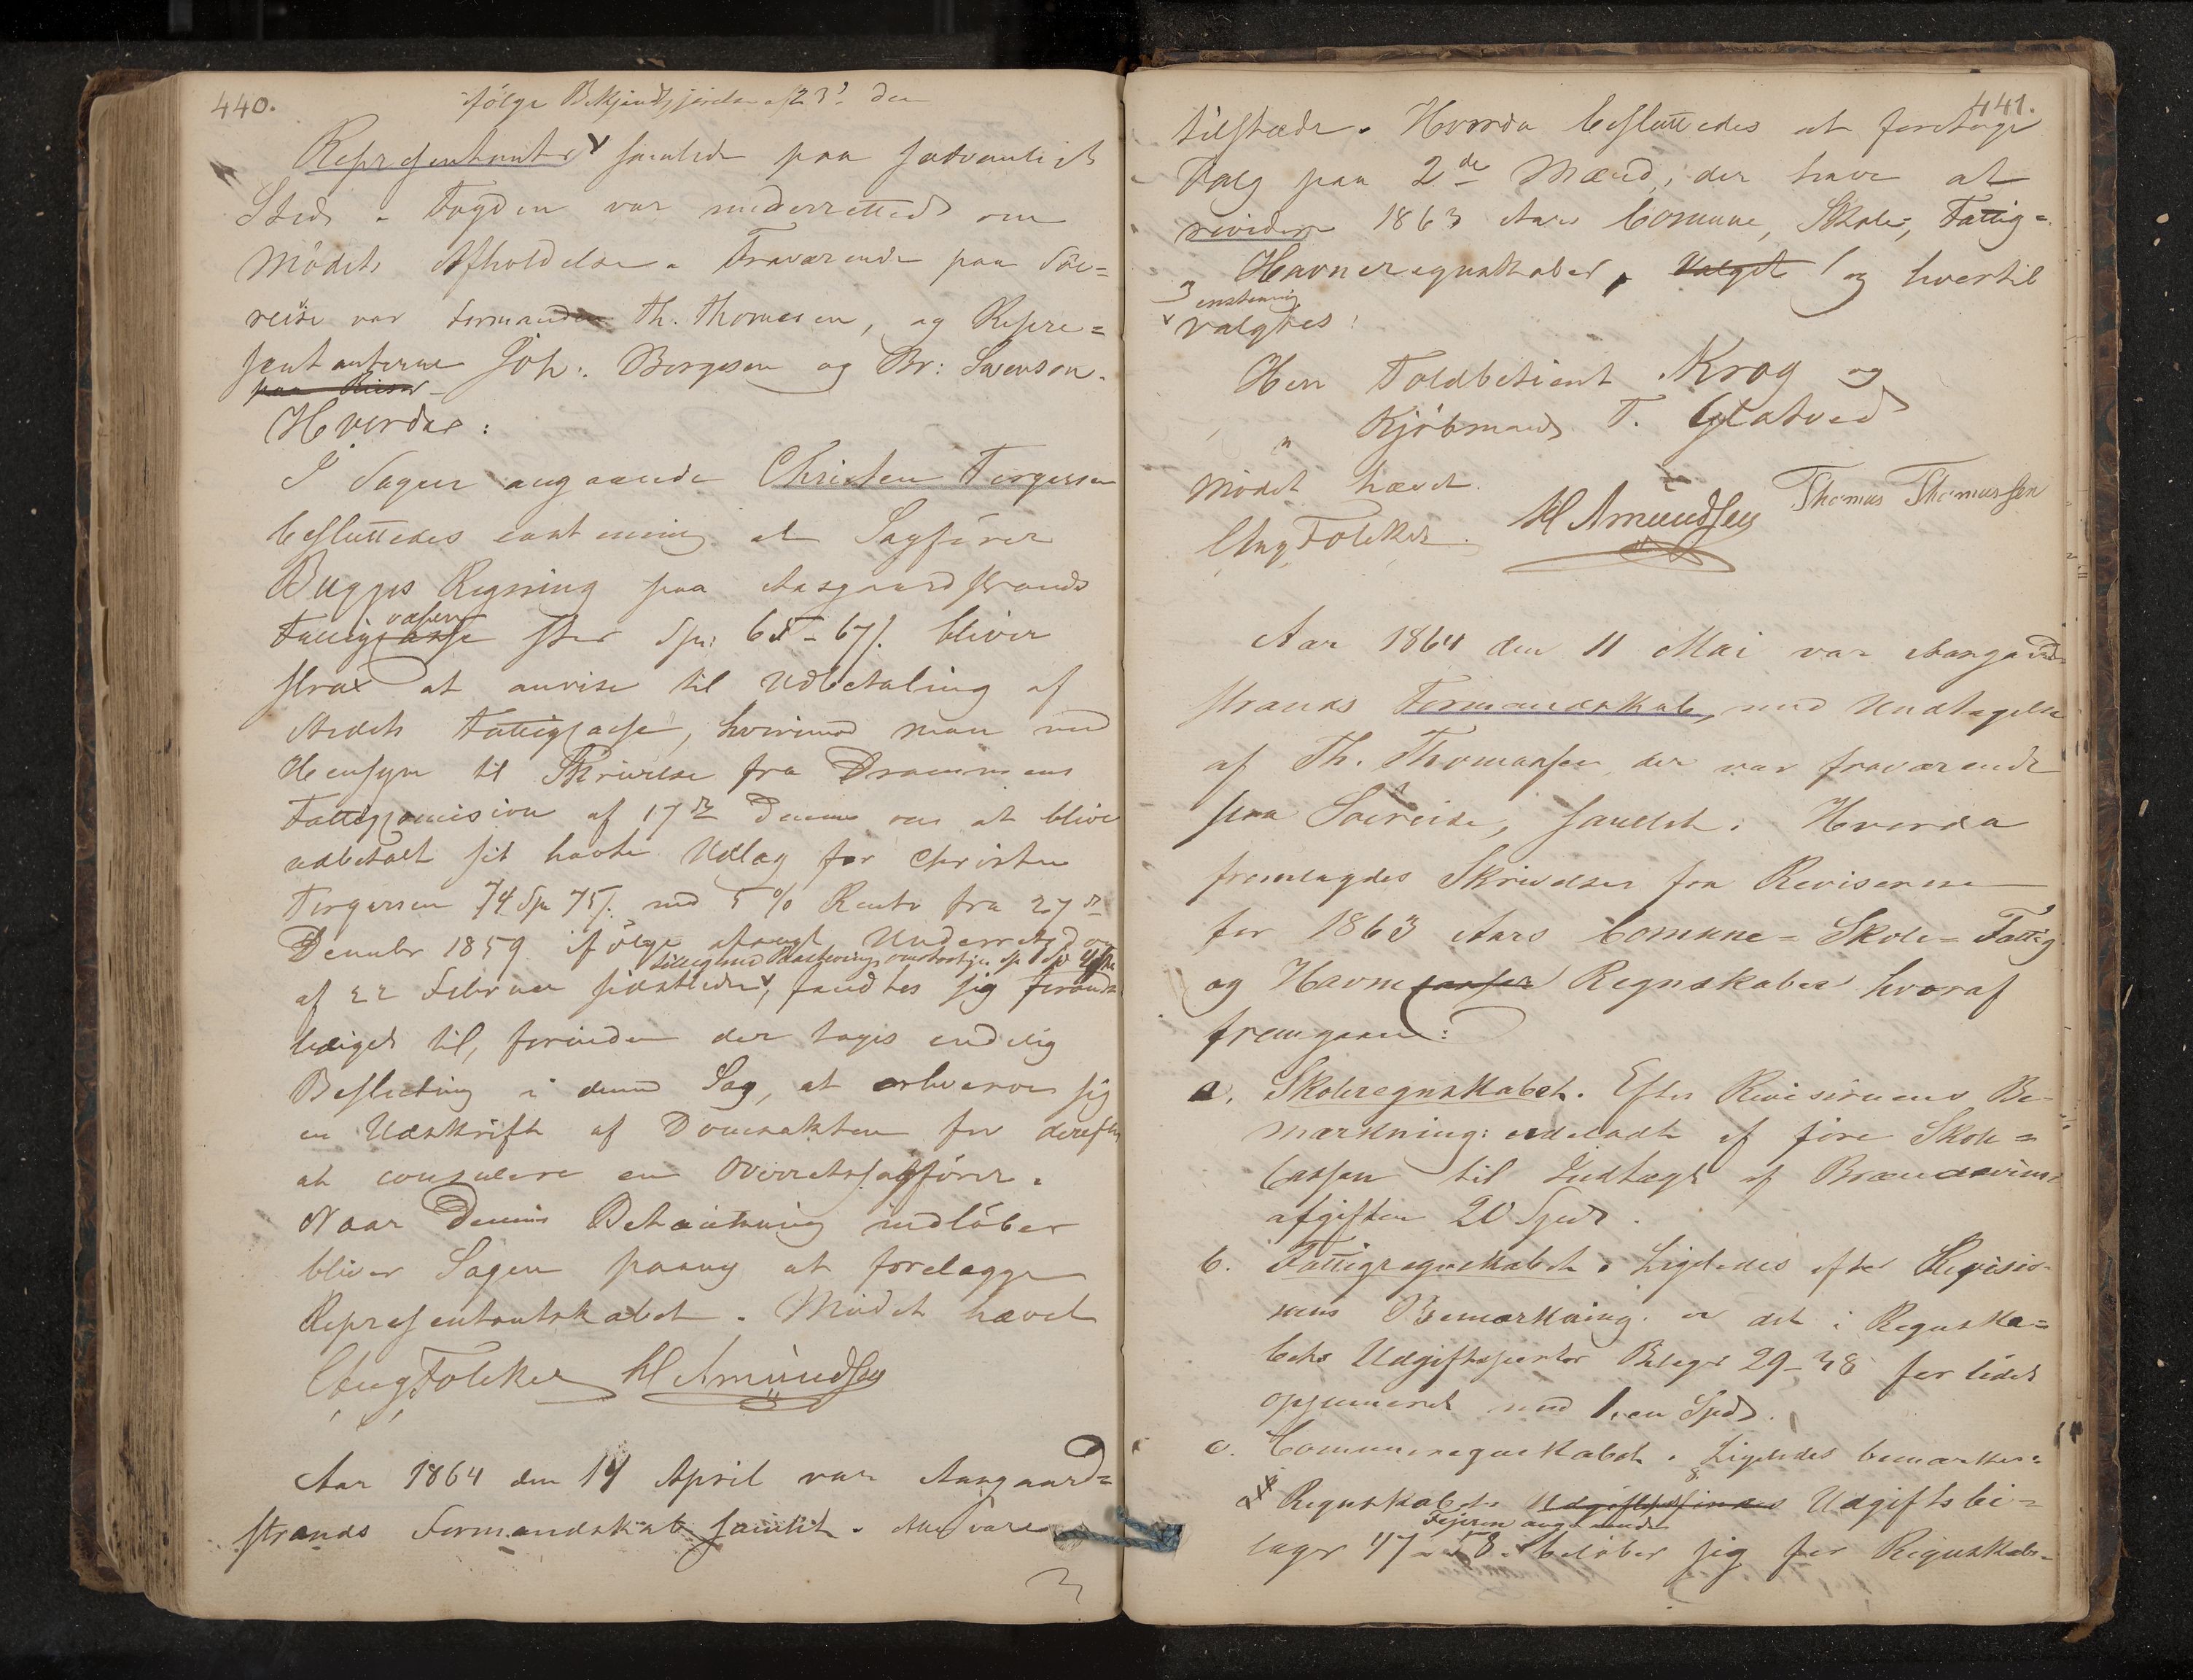 440.
ifølge Bekjendtgjørelse af 23' den
Representanter samlede paa sædvanligt
Sted. Fogden var underrettet om
Mødets Afholdelse. Fraværende paa Søe=
reise var Formanden Th. Thomesen, og Repre=
sentanterne Joh: Borgesen og Br: Svenson.
paa Reiser
Hvorda:
I Sagen angaaende Christen Torgersen
besluttedes eenstemmig at Sagfører
Bugges Regning paa Aasgaardstrands
Fattigcasse
væsen
stor Spd: 65-67/. bliver
strax at anvise til Udbetaling af
Stedets Fattigcasse, hvorimod man med
Hensyn til Skrivelse fra Drammens
Fattigcomision af 17de Dennes om at blive
udbetalt sit havte Udlæg for Christen
Torgersen 74 Spd 75/. med 5 % Rente fra 27de
Decembr 1859 ifølge afsagt Underretsdom
tilligemed
af 22 Februar sidstleden, fandtes sig foranle
lediget til, forinden der tages endelig
Beslutning i denne Sag, at erhverve sig
en Udskrift af Domsakten for derefter
at consulere en Overretssagfører.
Naar Dennes Betænkning indløber
bliver Sagen paany at forelægge
Representantskabet. Mødet hævet
Aug Folcker H Amundsen
Aar 1864 den 14 April var Aasgaard=
strands Formandskab samlet. Alle vare
441.
tilstæde. Hvorda besluttedes at foretage
Valg paa 2de Mænd, der have at
revidere 1863 Aars Comune, Skole, Fattig=
og Havneregnskaber, Valget og hvortil
enstemig
valgtes:
Herr Toldbetjent Krog og
" Kjøbmand T. Glatved
Mødet hævet.
Aug Folcker. H Amundsen Thomas Thomassen
Aar 1864 den 11 Mai var Aasgaard
strands Formandskab, med Undtagelse
af Th. Thomassen der var fraværende
paa Søereise, samlet. Hvorda
fremlagdes Skrivelser fra Revisorerne
for 1863 Aars Comune= Skole= Fattig
og Havnecasser Regnskaber hvoraf
fremgaaer:
a. Skoleregnskabet. Efter Revisionens Be-
mærkning: udeladt at føre Skole=
cassen til Indtægt af Brændeviins
afgiften 20 Spd.
b. Fattigregnskabet. Ligeledes efter Revisio-
nens Bemærkning. er det i Regnska=
bets Udgiftsposter Bilaget 29-38 for lidet
opsummeret med 1, en Spd.
c. Communeregnskabet. Ligeledes bemærkes:
at Regnskabets Udgiftsbi=
Fejeren angaaende
lager 47 - 58. beløber sig for Regnskabs-